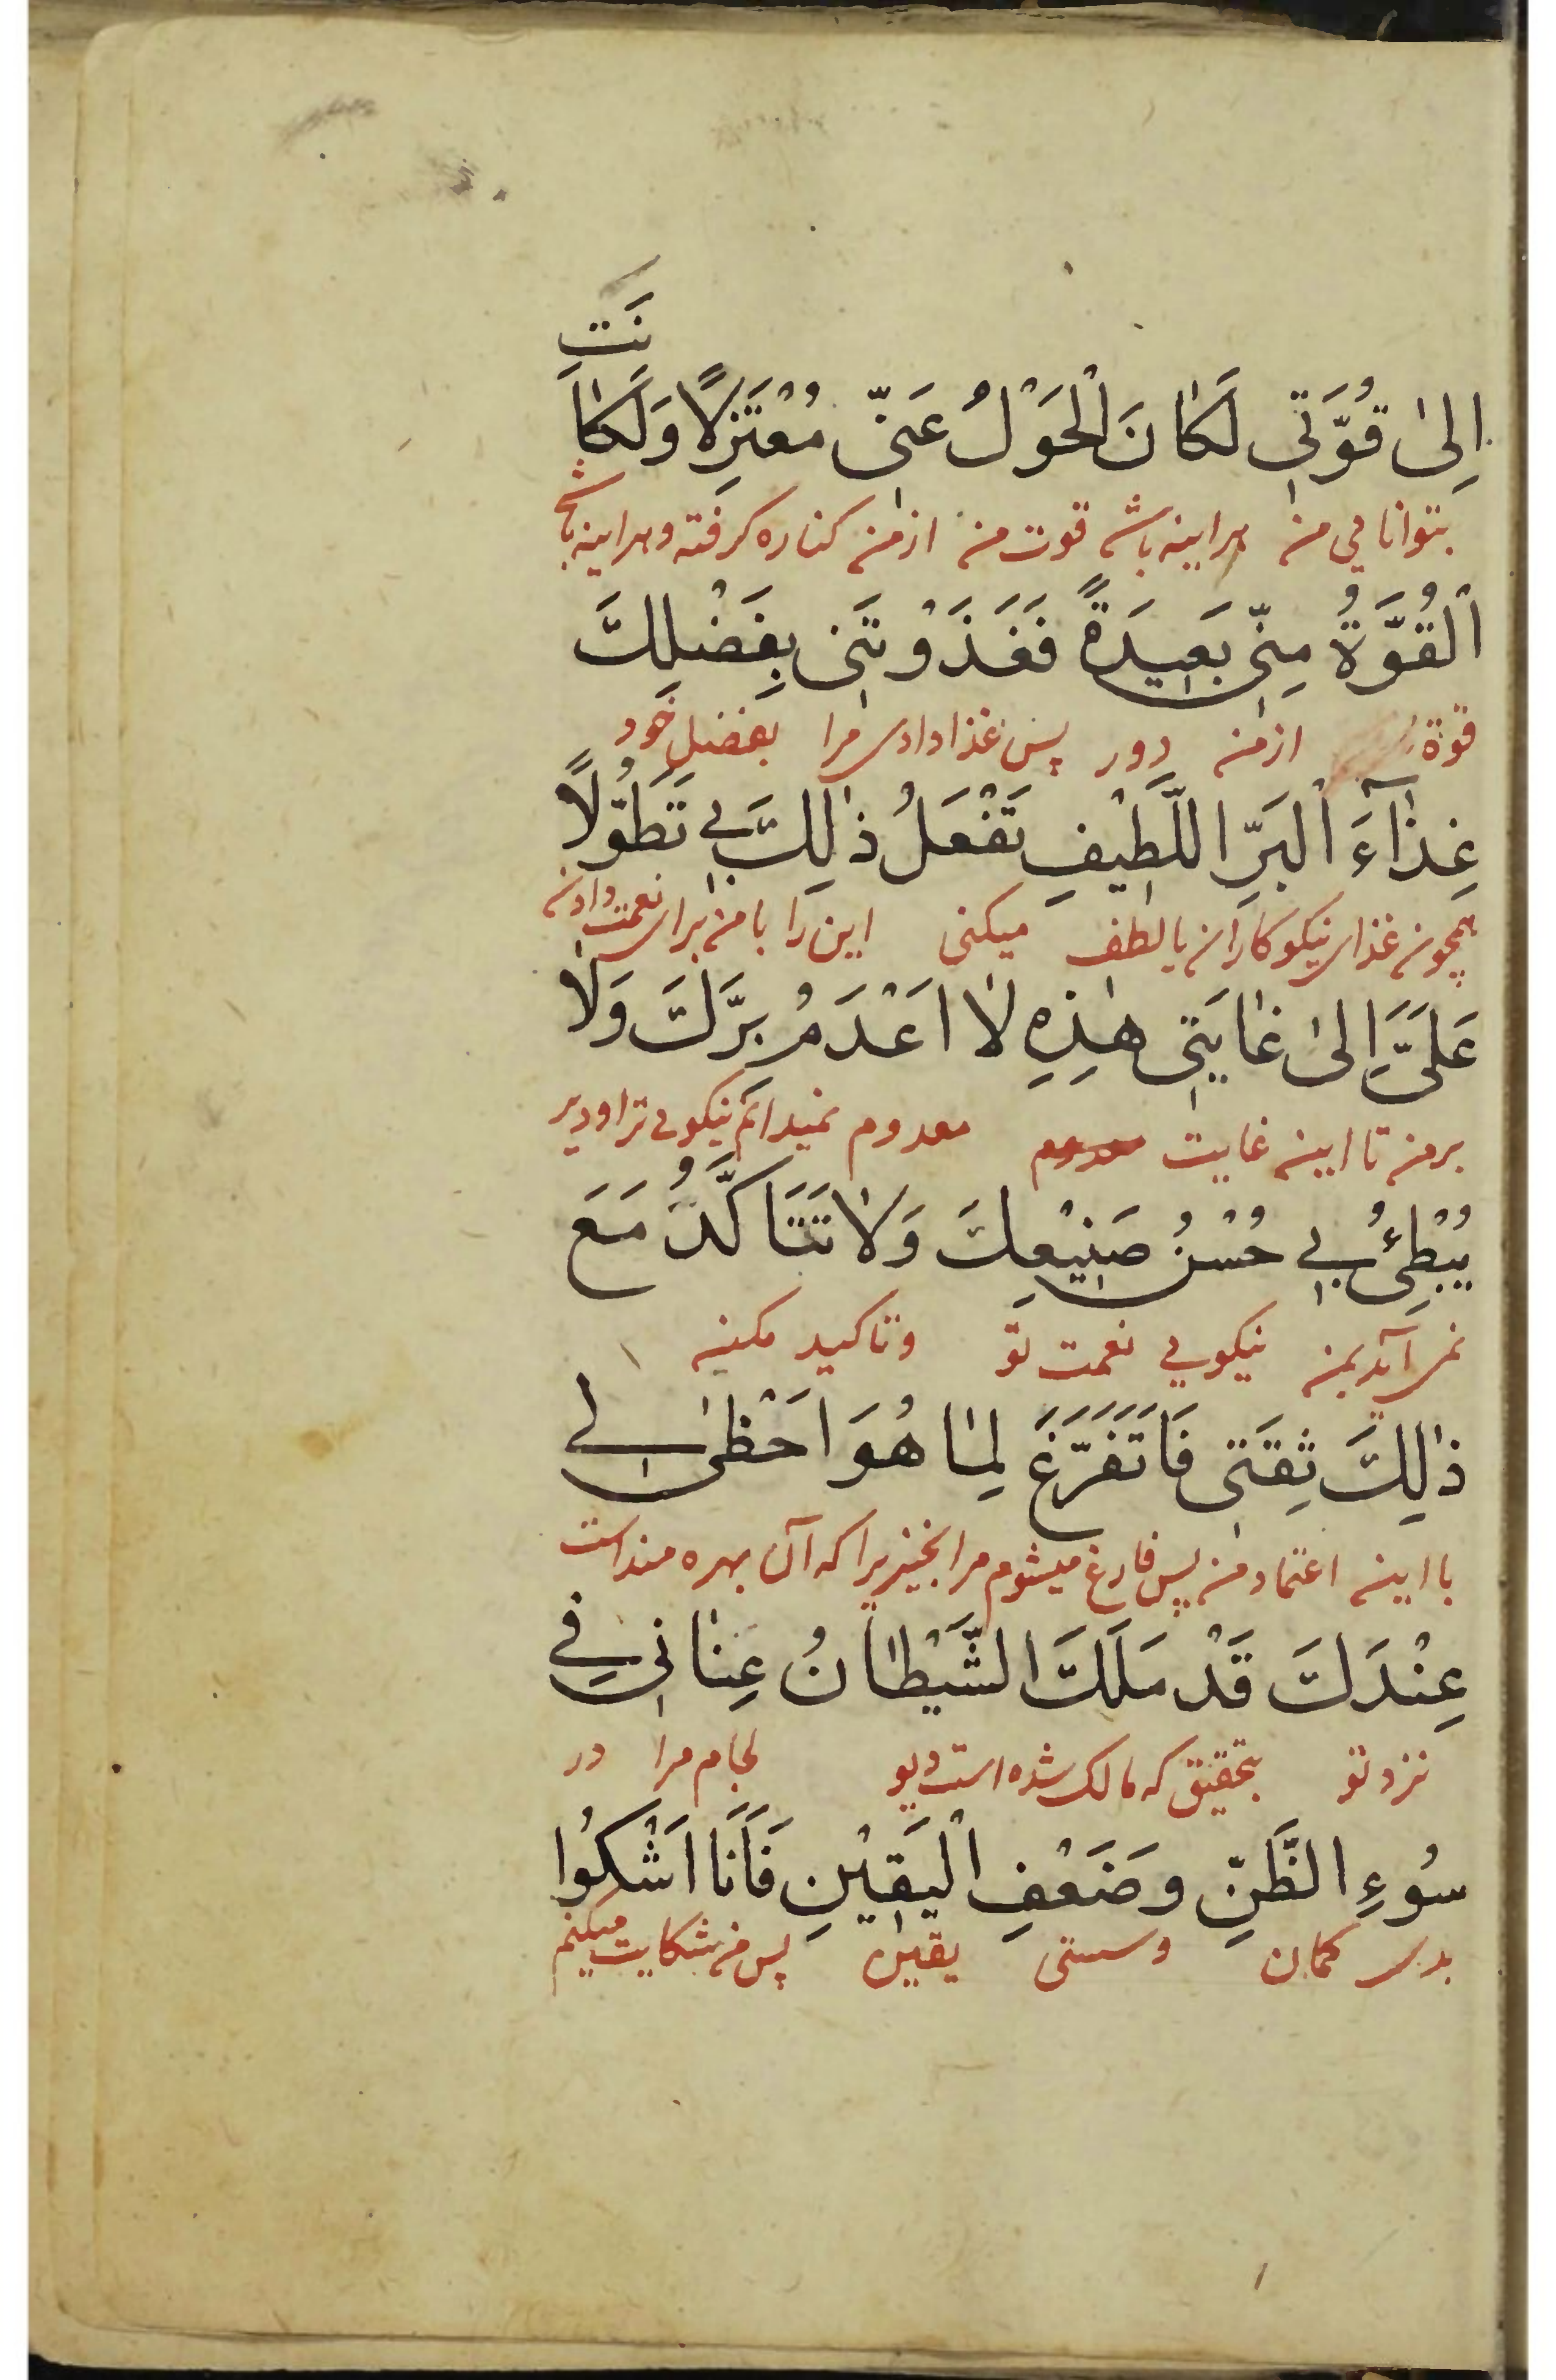 اِلىٰ قُوَّتِي لَكٰانَ الْحَوْلُ عَنِّي مُعْتَزِلًا وَلَكٰانَتِ
بتوانايي من هراينه باشد قوت من از من كناره كرفته و هراينه باشد
اْلقُوَّةُ مِنِّي بَعِيدَةً فَغَذَوْتَنِي بِفَضْلِكَ
قوة از من دور پس غذا دادى مرا بفضل خود
غِذٰآءَ اْلبَرِّ اللَّطِيفِ تَفْعَلُ ذٰلِكَ بِي تَطَوُّلًا
همچون غذاى نيكوكاران با لطف ميكنى اين را با من براى نعمت دادن
عَلَيَّ اِلىٰ غٰايَتِي هٰذِهِ لٰا اَعْدَمُ بِرَّكَ وَلٰا
بر من تا اين غايت معدوم نميدانم نيكويى ترا و دير
يُبْطِئُ بِي حُسْنُ صَنِيْعِكَ وَلٰا تَتَاَكَّدُ مَعَ
نمى آيد بمن نيكويي نعمت تو و تاكيد مكن
ذٰلِكَ ثِقَتِي فَاَتَفَرَّغَ لِمٰا هُوَ اَحْظىٰ لِي
با اين اعتماد من پس فارغ ميشوم مرا بخيزيرا كه آن بهره مند است
عِنْدَكَ قَدْ مَلَكَ الشَّيْطٰانُ عِنٰانِي فِي
نزد تو بتحقيق كه مالك شده است ديو لجام مرا در
سُوءِ الظَّنِّ وَضَعْفِ اْليَقِيْنِ فَاَنَا اَشْكُوا
بدى كمان و سستى يقين پس من شكايت ميكنم